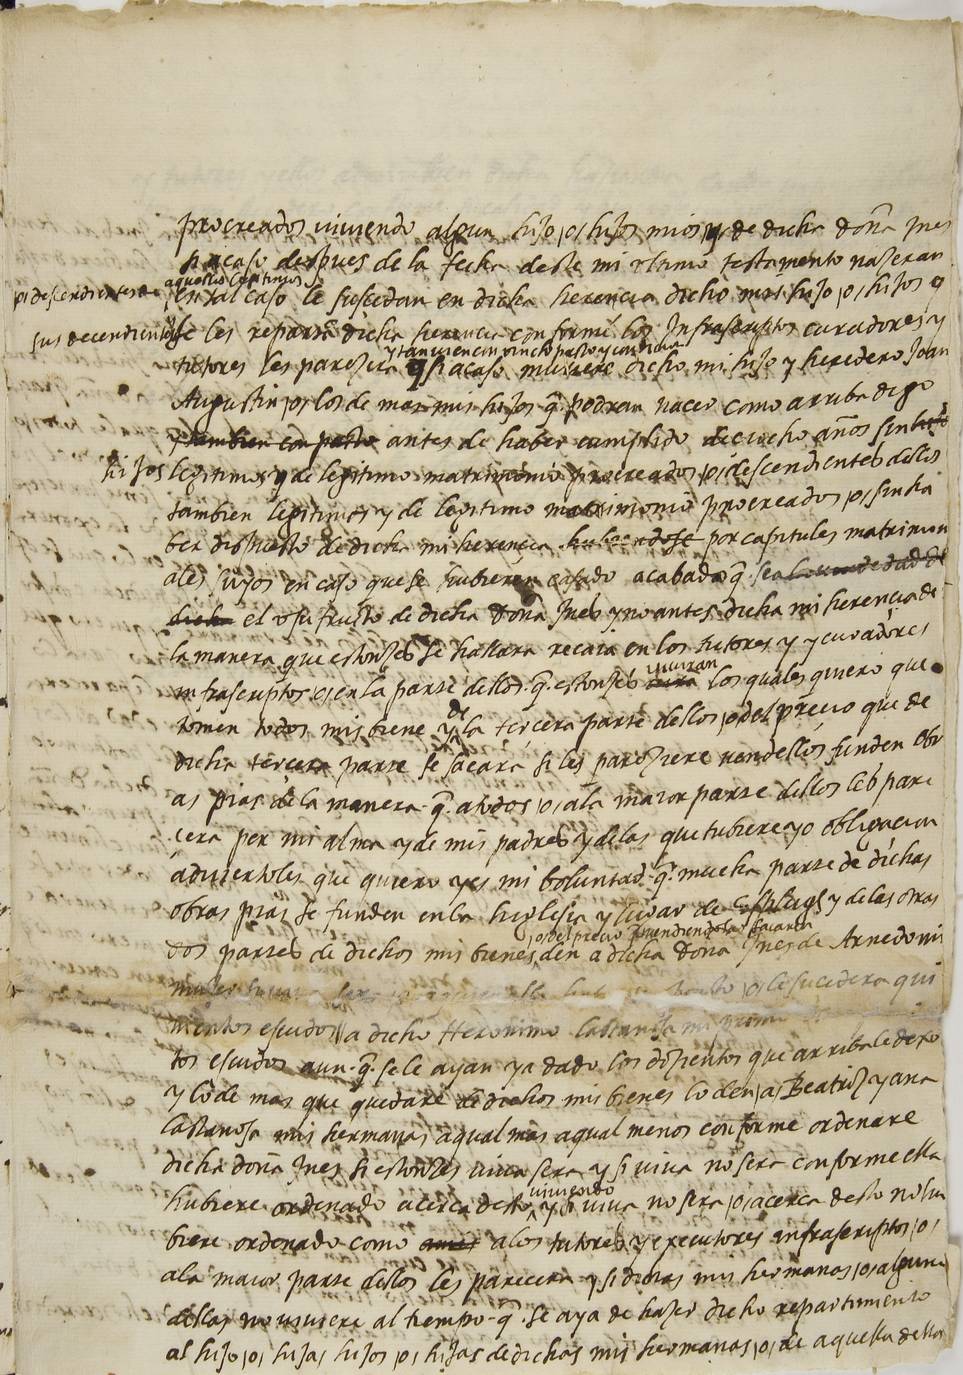 procreados viviendo algun hijo, o, hijos mios y de dicha doña Ines
si acaso despues de la fecha deste mi ultimo testamento naszeran
o, descendientes de aquellos legitimos en tal caso le suscedan en dicha herencia dicho mas hijo, o, hijos q
sus decendientes y se les reparta dicha herencia conforme los Infrascriptos curadores y
tutores les pareszera y tambien con vincto pacto y condicion q si acaso muriere dicho mi hijo y heredero Joan
Augustin, o, los de mas mis hijos q. podran nacer como arriba digo
y tambien con pacto antes de haber cumplido diciocho años sin
hijos legitimos y de legitimo matrimonio procreados, o, descendientes dellos
tambien legitimos y de legitimo matrimonio procreados, o, sin ha
ber dispuesto de dicha mi herencia hubiendose por capitules matrimon
iales suyos en caso que se hubieren casado acabado q. sea
dicha el usufructo de dicha Doña Ines y no antes dicha mi herencia de
la manera que estonzes se hallara recaia en los tutores y curadores
infrascriptos, o, en la parte dellos q. estonzes viviran los quales quiero que
tomen todos mis biene y de la tercera parte dellos, o, del precio que de
dicha tercera parte se sacara si les paresziere vendellos funden obr
as pias de la manera q. a todos, o, a la maior parte dellos les pare
cera per mi alma y de mis padres y de las que tubiere yo obligacion
adviertoles que quiero y es mi boluntad q. mucha parte de dichas
obras pias se funden en la Iiglesia y lugar de y de las otras
dos partes de dichos mis bienes, o, del precio vendiendolas sacaran den a dicha Doña Ines de Arnedo mi
muger o, le sucedera qui
nientos escudos a dicho Heronimo Lastanosa mi primo
tos escudos aun q. se le ayan ya dado los dozientos que arriba le dexo
y lo de mas que quedare de dichos mis bienes lo den, a, Beatriz y ana
Lastanosa mis hermanas a qual mas a qual menos conforme ordenare
dicha doña Ines si estonzes viva sera y si viva no sera conforme ella
hubiere ordenado acerca desto viviendo y si viva no sera, o, acerca desto no hu
biere ordenado como a los tutores y executores infrascriptos, o,
a la maior parte dellos les parecera y si dichas mis hermanas, o, alguna
dellas no viviere al tiempo q. se aya de hazer dicho repartimiento
al hijo, o, hija, hijos, o, hijas de dichas mis hermanas, o, de aquella dellas